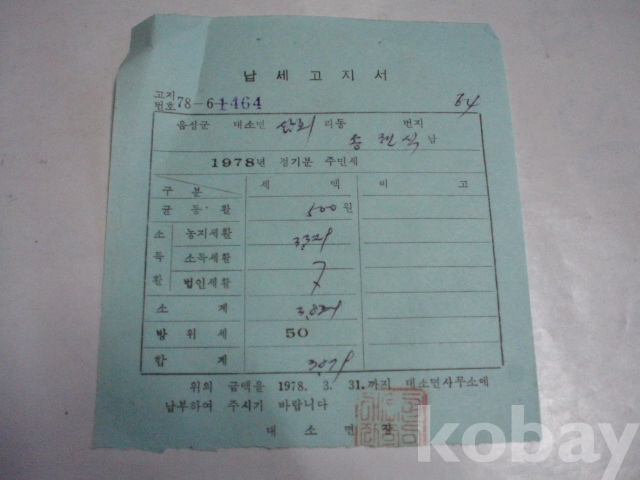 납세고지서
고지
번호 78-61464
64
음성군 대소면 삼호 리동 번지
송 식 납
1978년 정기분 주민세
구 분 세 액 비 고
균 등 활 500원
소득활 농지세활 3,329
소득세활
법인세활
소 계 3,829
방 위 세 50
합 계 3,879
위의 금액을 1978. 3. 31.까지 대소면사무소에
납부하여 주시기 바랍니다
대 소 면 장
kobay